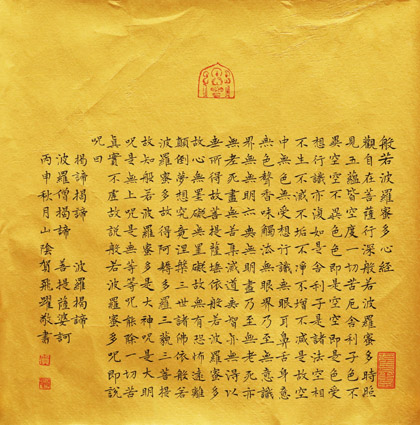 般若波羅蜜多心經
觀自在菩薩行深般若波羅蜜多時照
見五蘊皆空度一切苦厄舍利子色不
異空空不異色色即是空空即是色受
想行識亦復如是舍利子是諸法空相
不生不滅不垢不淨不增不減是故空
中無色無受想行識無眼耳鼻舌身意
無色聲香味觸法無眼界乃至無意識
界無無明亦無無明盡乃至無老死亦
無老死盡無苦集滅道無智亦無得以
無所得故菩提薩埵依般若波羅蜜多
故心無罣礙無罣礙故無有恐怖遠離
顛倒夢想究竟涅槃三世諸佛依般若
波羅蜜多故得阿耨多羅三藐三菩提
故知般若波羅蜜多是大神呪是大明
呪是無上呪是無等等呪能除一切苦
真實不虛故說般若波羅蜜多呪即說
呪曰
揭諦揭諦 波羅揭諦
波羅僧揭諦 菩提薩婆訶
丙申秋月山陰賀飛躍敬書